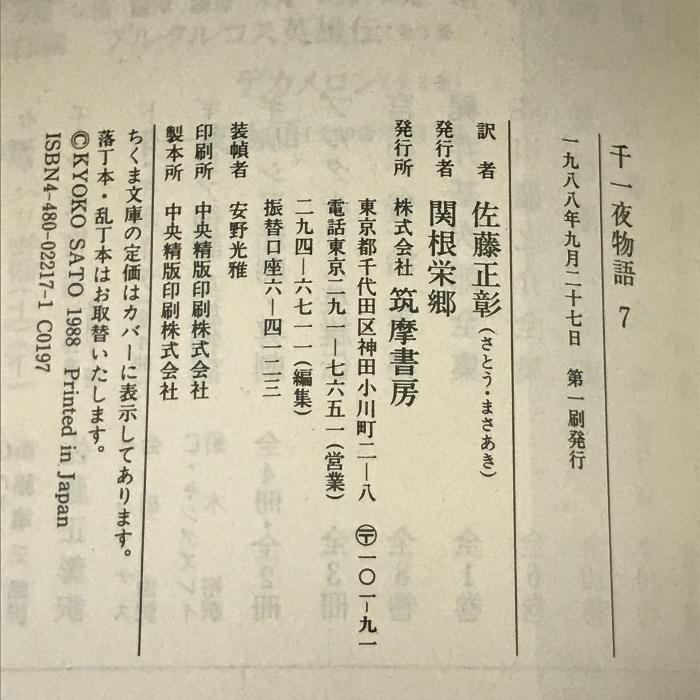 千一夜物語 7
一九八八年九月二十七日 第一刷発行
訳者 佐藤正彰(さとう・まさあき)
発行者 関根栄郷
発行所 株式会社 筑摩書房
東京都千代田区神田小川町二—八 〒一〇一-九一
電話東京二九一—七六五一(営業)
二九四—六七一一(編集)
振替口座六—四一二三
装幀者 安野光雅
印刷所 中央精版印刷株式会社
製本所 中央精版印刷株式会社
ちくま文庫の定価はカバーに表示してあります。
落丁本・乱丁本はお取替いたします。
©KYOKO SATO 1988 Printed in Japan
ISBN4-480-02217-1 C0197